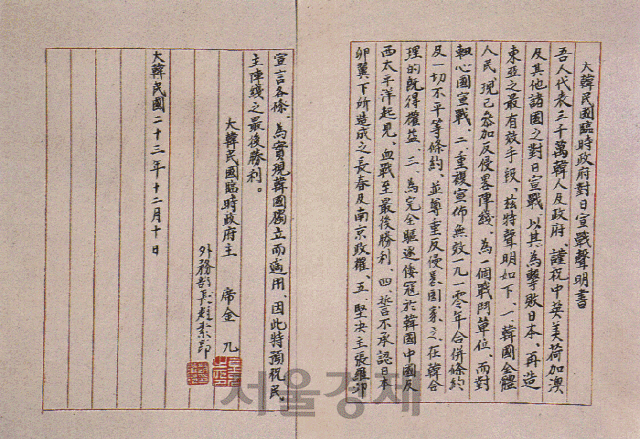 大韓民國臨時政府對日宣戰聲明書
吾人代表三千萬韓人及政府、謹祝中英美荷加澳
及其他諸國之對日宣戰、以其為擊敗日本、再造
東亞之最有效手段、茲特聲明如下、一、韓國全體
人民、現已參加反侵畧陣綫、為一個戰鬥單位、而對
軸心國宣戰、二、重複宣佈無效一九一零年合併條約
及一切不平等條約、並尊重反侵畧國家之、在韓合
理的既得權益、三、為完全驅逐倭寇於韓國中國及
西太平洋起見、血戰至最後勝利、四、誓不承認日本
卵翼下所造成之長春及南京政權、五、堅決主張羅邱
宣言各條、為實現韓國獨立而適用、因此特預祝民
主陣綫之最後勝利。
大韓民國臨時政府主 席 金 九
外務部長趙素昂
大韓民國二十三年十二月十日
서울경제